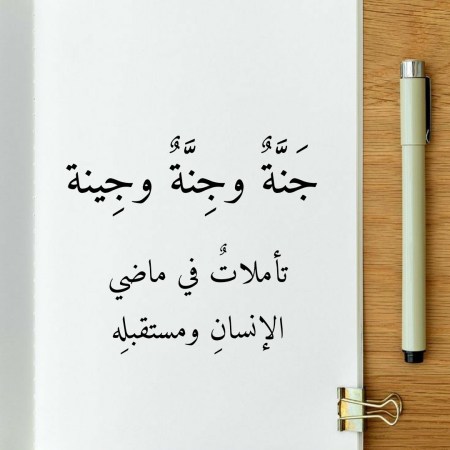 جَنَّةٌ وجِنَّةٌ وجِينة
تأملاتٌ في ماضي
الإنسانِ ومستقبلِه